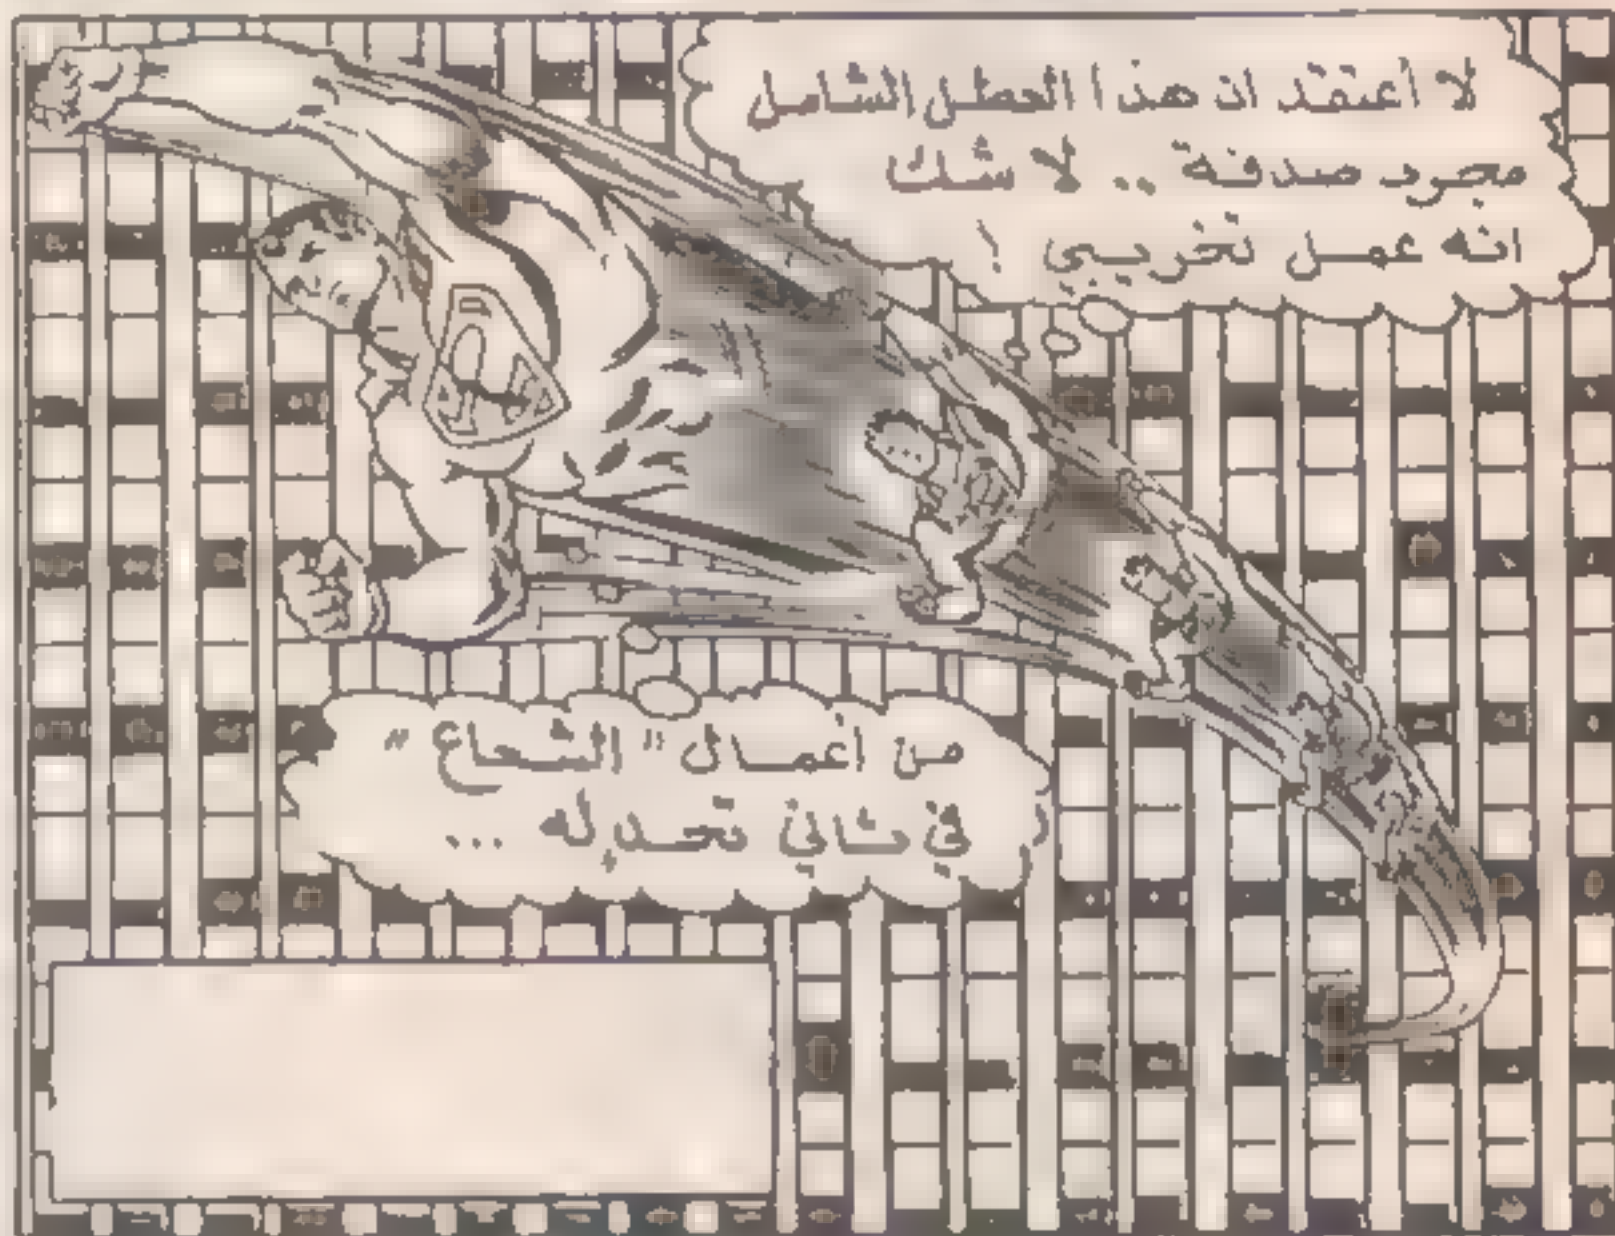 لا أعتقد ان هذا العطل الشامل
مجرد صدفة .. لا شك
انه عمل تخريبي !
من أعمال "الشعاع"
في ثاني تحدٍ له ...